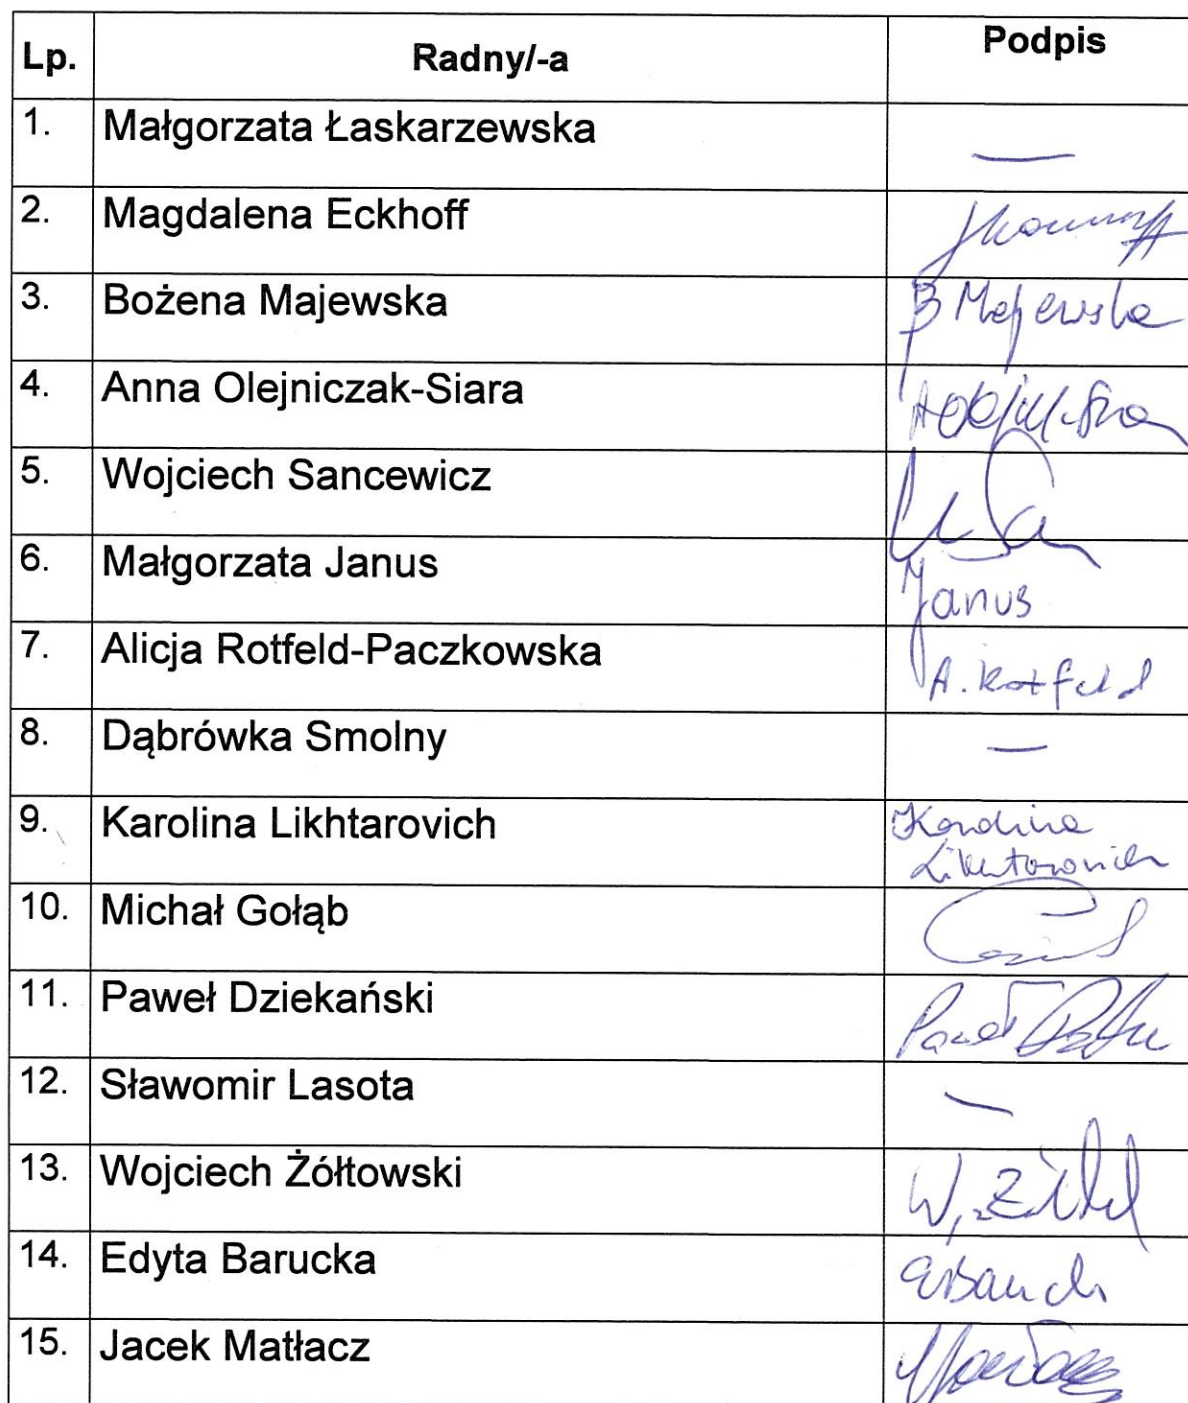 Lp. Radny/-a Podpis
1. Małgorzata Łaskarzewska —
2. Magdalena Eckhoff
3. Bożena Majewska B Majewska
4. Anna Olejniczak-Siara
5. Wojciech Sancewicz
6. Małgorzata Janus Janus
7. Alicja Rotfeld-Paczkowska A. Rotfeld
8. Dąbrówka Smolny —
9. Karolina Likhtarovich Karolina
Likhtarovich
10. Michał Gołąb
11. Paweł Dziekański Paweł
12. Sławomir Lasota —
13. Wojciech Żółtowski
14. Edyta Barucka
15. Jacek Matłacz